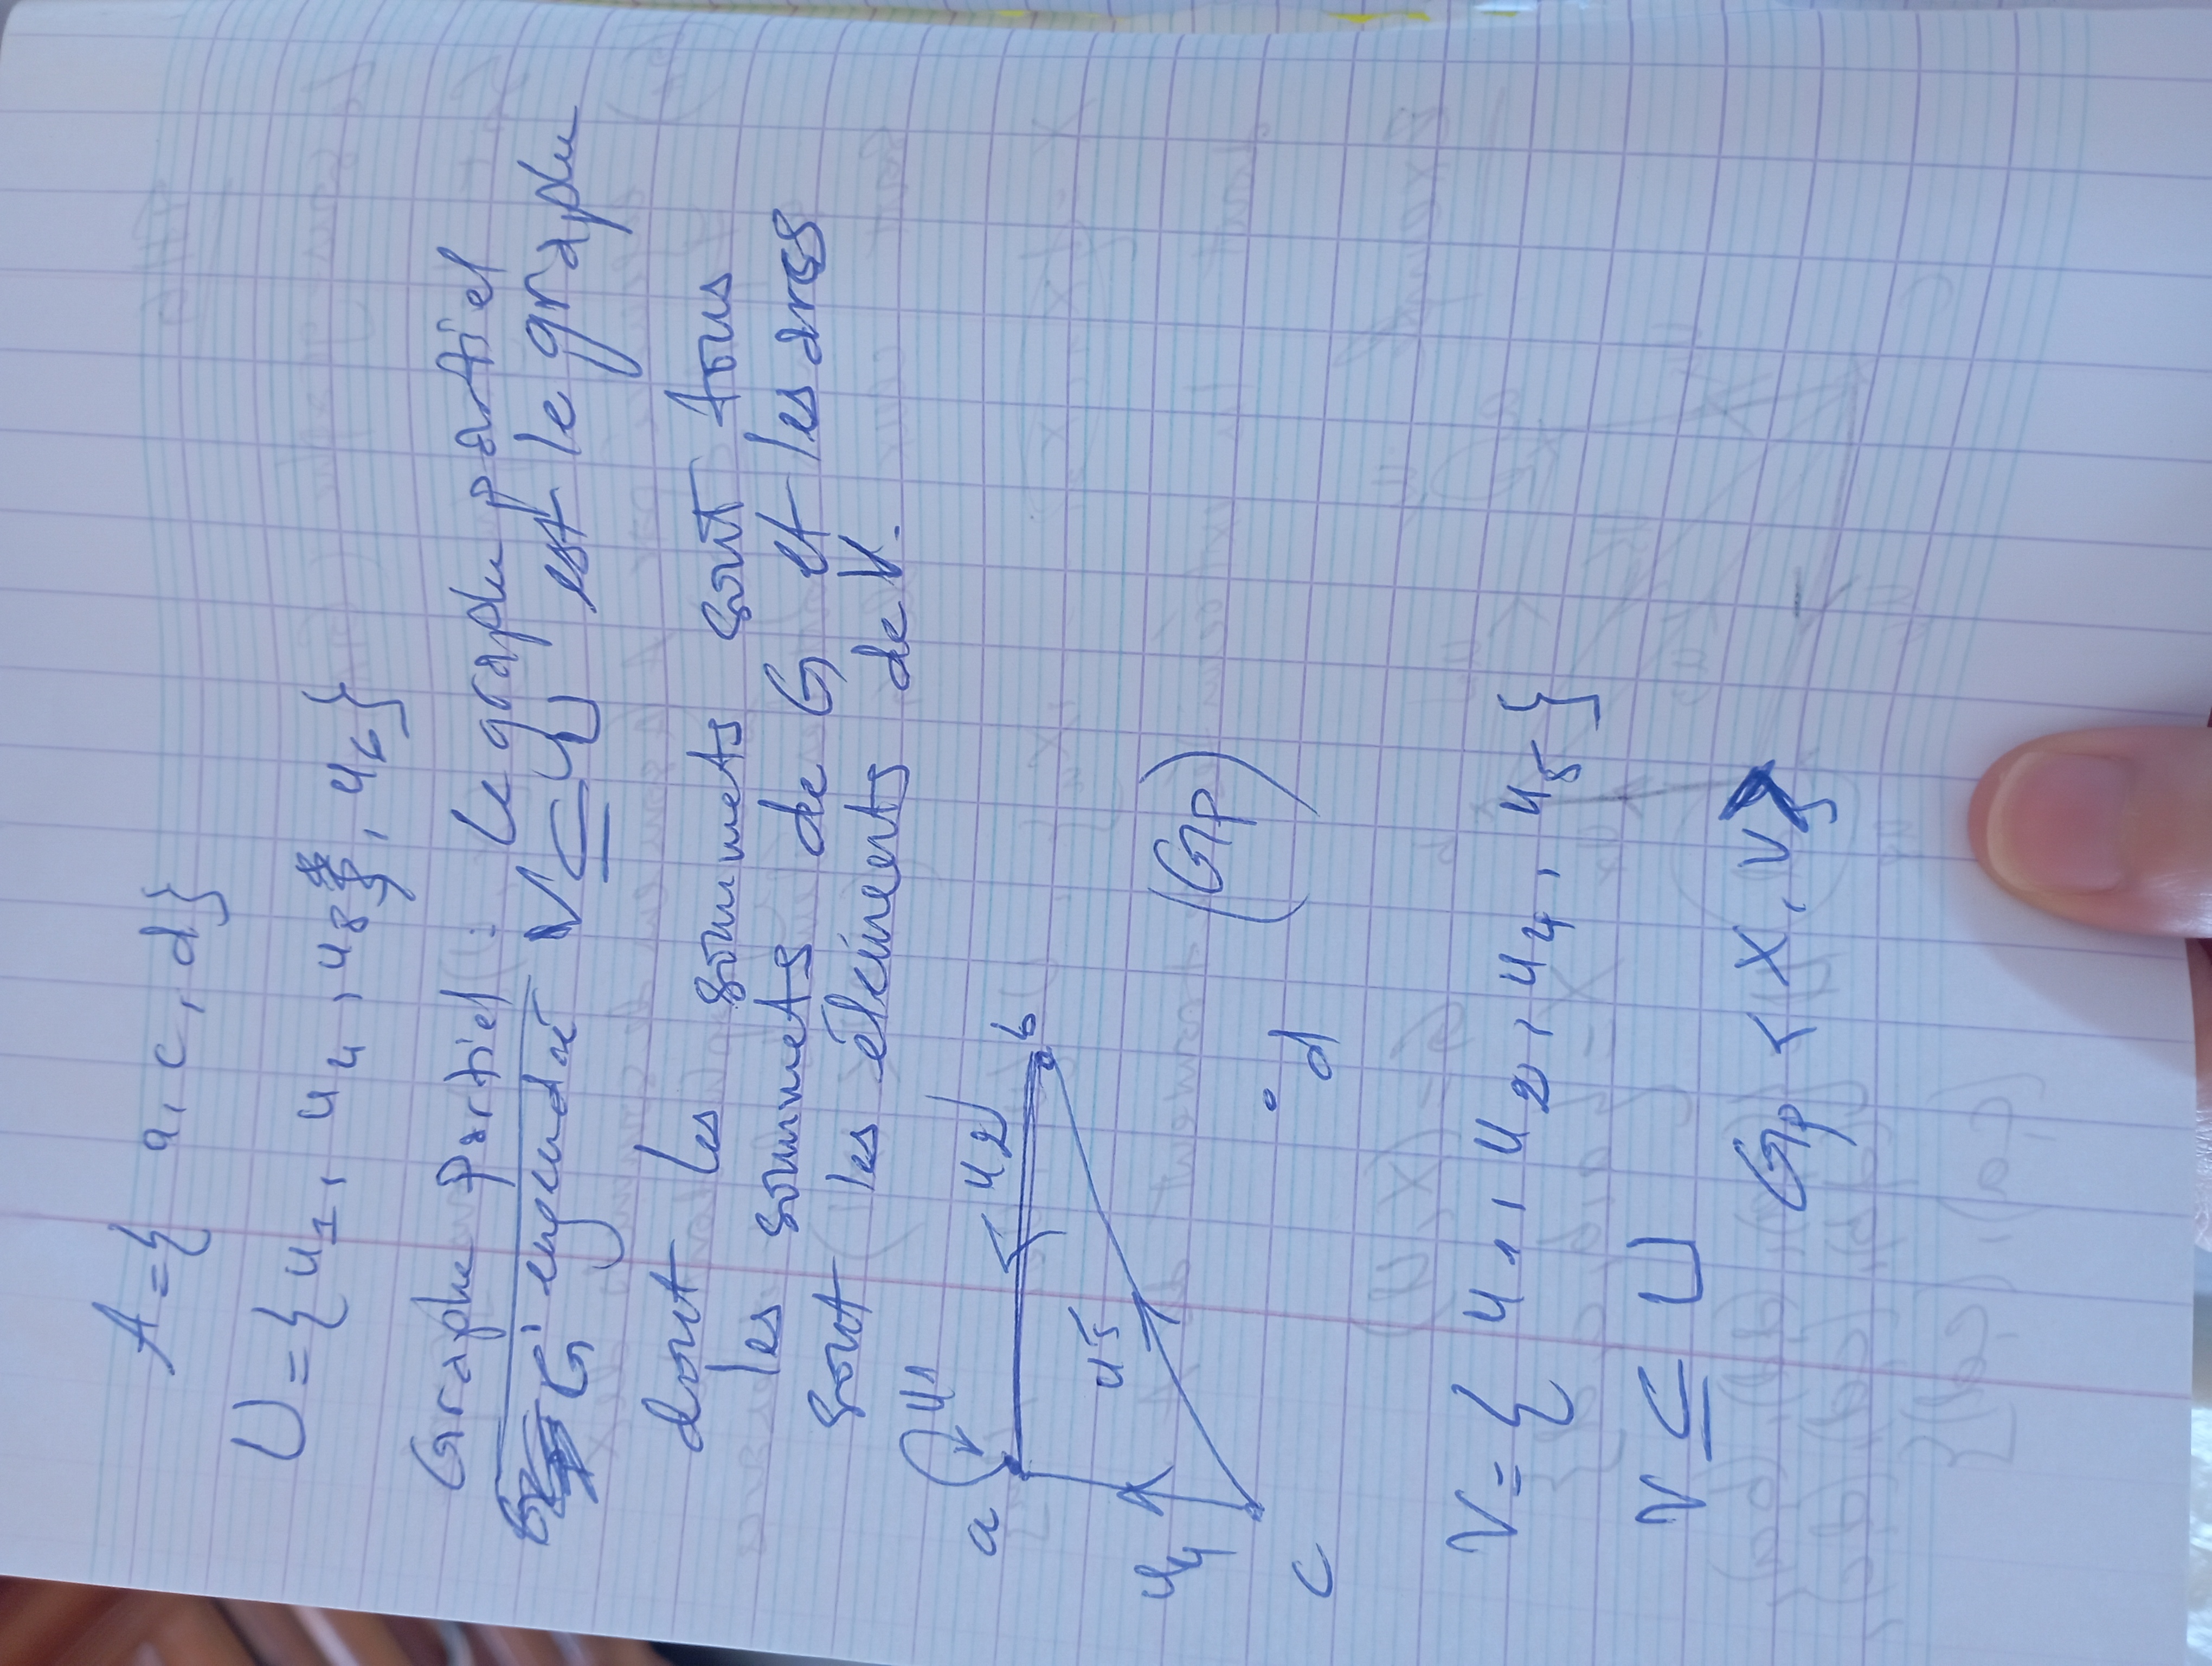 A = { a, c, d }
U = { u1, u4, u8, u6 }
Graphe partiel : le graphe partiel
G engendré V ⊆ U est le graphe
dont les sommets sont tous
les sommets de G et les arcs
sont les éléments de V.
a u1 u2 b
u4 u5
c d (Gp)
V = { u1, u2, u4, u5 }
V ⊆ U
Gp < X, V >